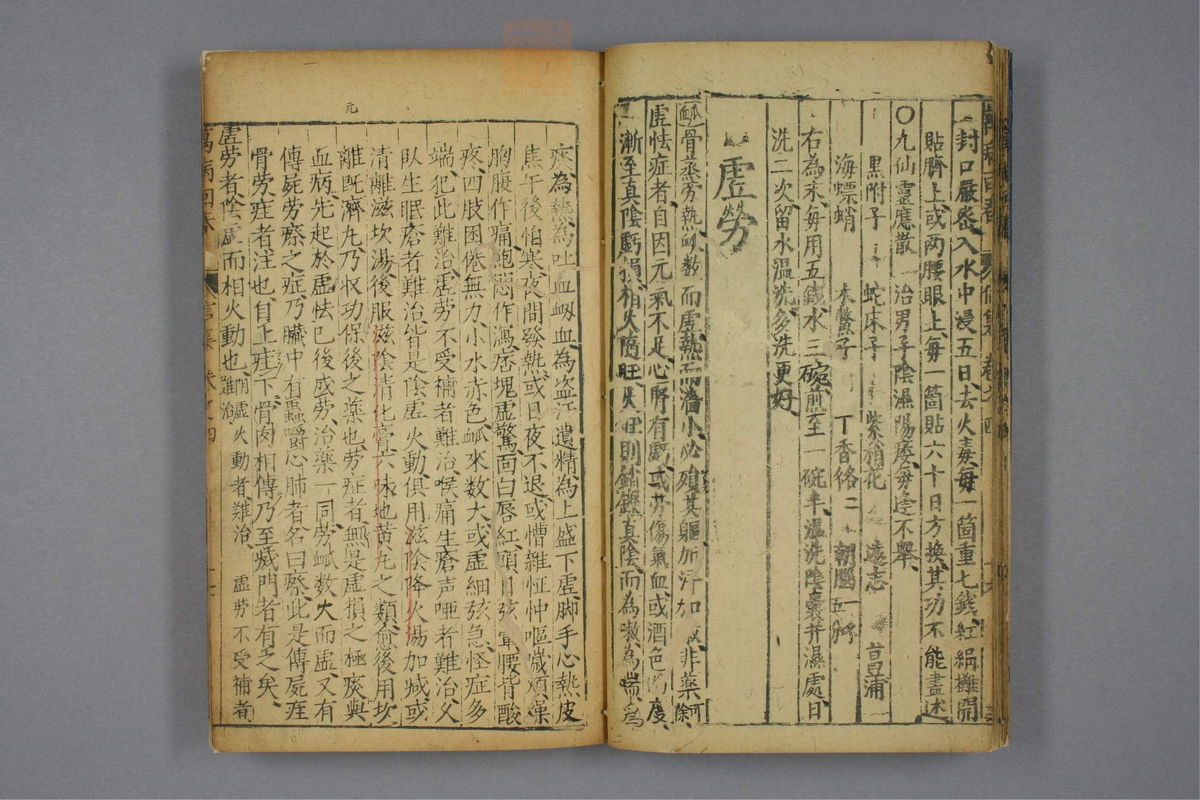 封口嚴密入水中浸五日去火毒每一箇重七錢紅絹攤開
貼臍上或兩腰眼上每一箇貼六十日方換其功不能盡述
○九仙靈應散 治男子陰濕陽痿每逢不舉
黑附子 蛇床子 紫稍花 遠志 菖蒲
海螵蛸 木鱉子 丁香各二 朝腦一
右為末每用五錢水三碗煎至一碗半溫洗陰囊并濕處日
洗二次留水溫洗多洗更好
虛勞
骨蒸勞熱 数而虛熱而濇小必殞其軀加汗加 非藥可除
虛怯症者自因元氣不足心腎有虧或勞傷氣血或酒色 度
漸至真陰虧損相火 旺火旺則銷鑠真陰而為嗽為喘為
痰為熱為吐血衂血為盗汗遺精為上盛下虛脚手心熱皮
焦午後怕寒夜間發熱或日夜不退或嘈雜怔忡嘔噦煩燥
胸腹作痛飽悶作瀉痞塊虛驚面白唇紅頭目弦暈腰背酸
疼四肢困倦無力小水赤色脉來数大或虛細弦急怪症多
端犯此難治虛勞不受補者難治喉痛生瘡声啞者難治久
臥生眠瘡者難治皆是陰虛火動俱用滋陰降火湯加减或
清離滋坎湯後服滋陰清化膏六味地黄丸之類愈後用坎
離既濟丸乃収功保後之藥也勞症者無是虛損之極痰與
血病先起於虛怯已後感勞治藥一同勞脉数大而虛又有
傳屍勞瘵之症乃臟中有蟲嚙心肺者名曰瘵此是傳屍疰
骨勞疰者注也自上疰下骨肉相傳乃至滅門者有之矣
虛勞者陰虛而相火動也 陰虛火動者難治 虛勞不受補者難治
萬病回春
元